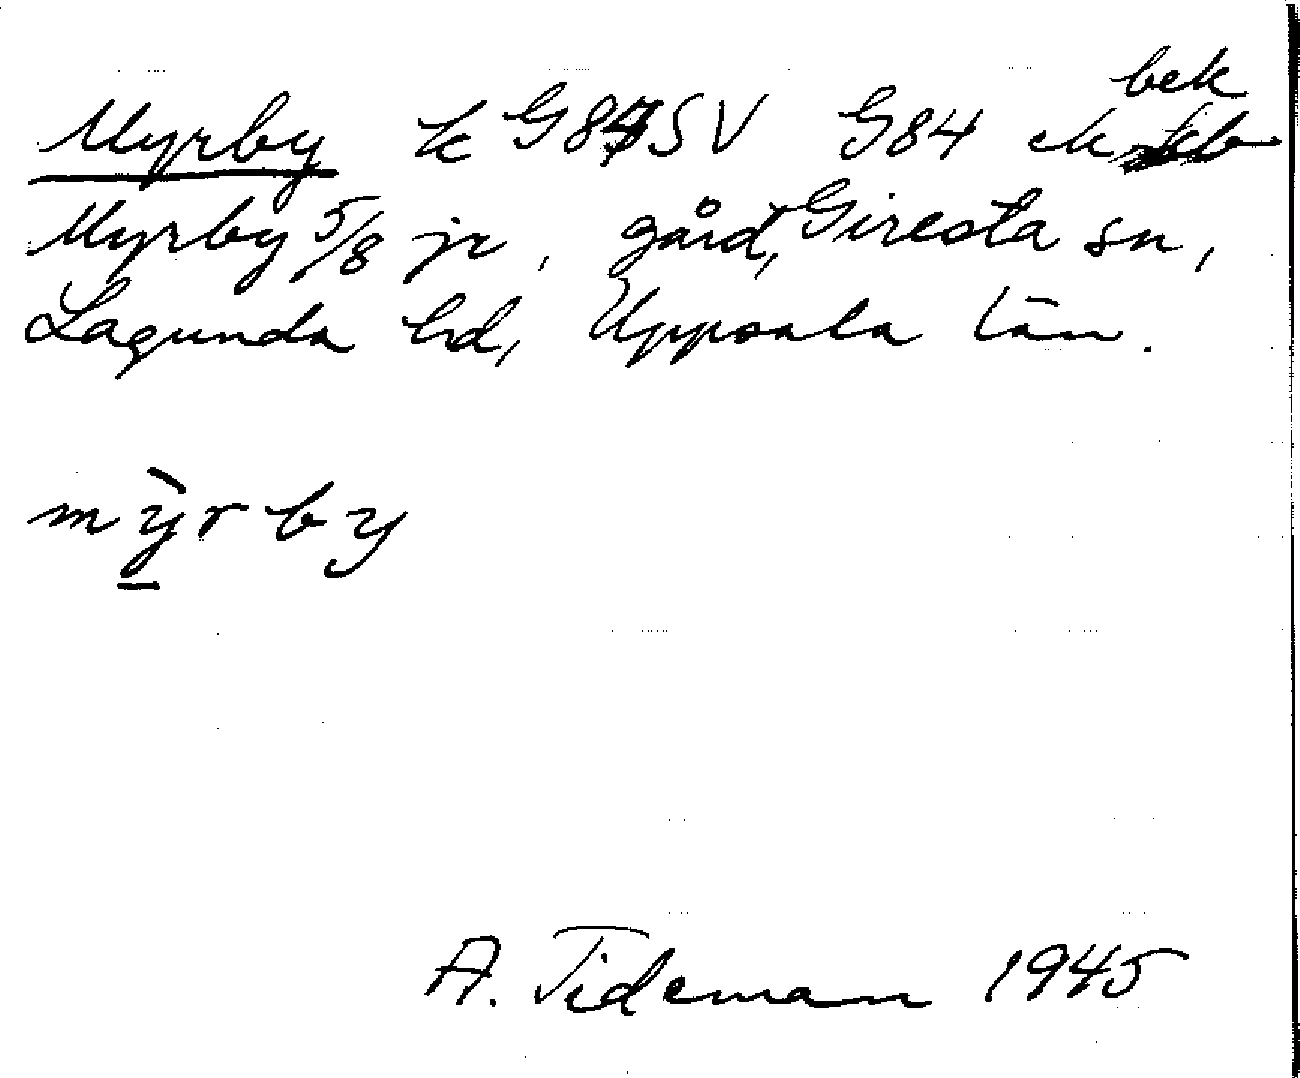 bek
Myrby k G84SV G84 ek
Myrby 5/8 jr, gård, Giresta sn,
Lagunda hd, Uppsala län.
mỳrby
A. Tideman 1945